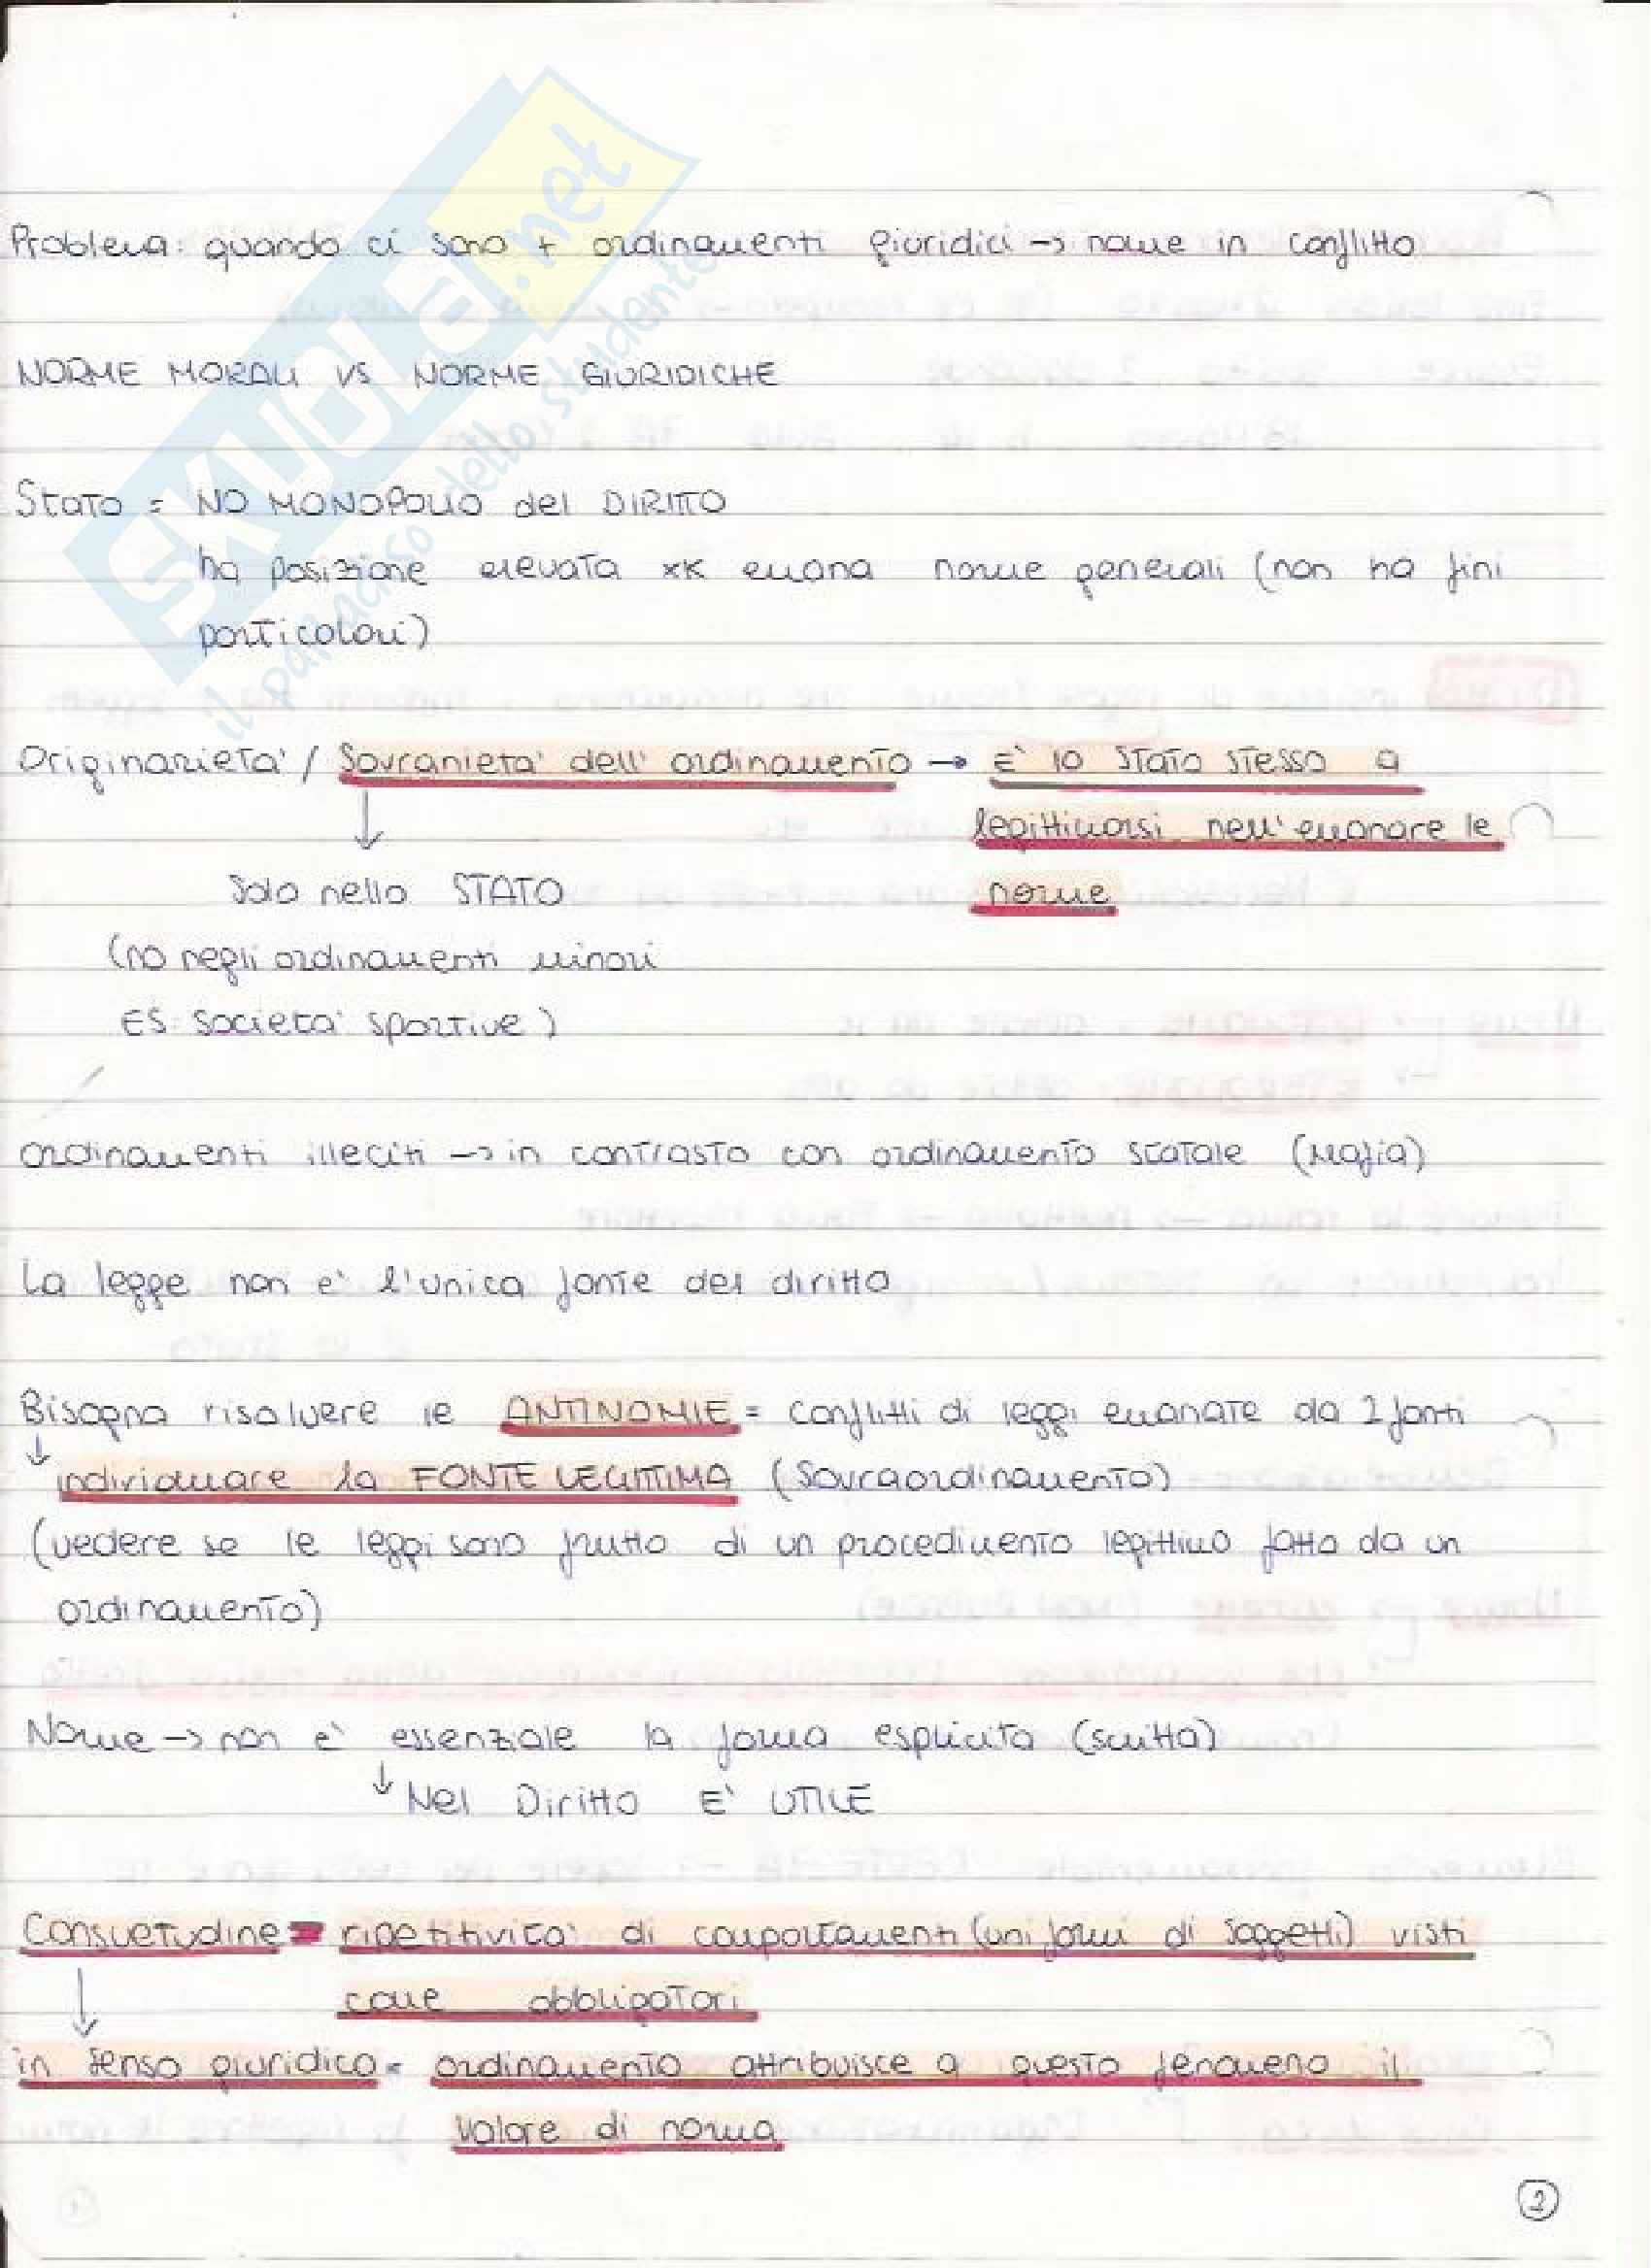 SKUOLA.net
il paradiso dello studente
Problema: quando ci sono + ordinamenti giuridici → norme in conflitto
NORME MORALI VS NORME GIURIDICHE
Stato = NO MONOPOLIO del DIRITTO
ha posizione elevata xk emana norme generali (non ha fini
particolari)
Originarietà / Sovranietà dell'ordinamento → E' lo Stato stesso a
↓ legittimarsi nell'emanare le
Solo nello STATO norme
(no negli ordinamenti minori
ES: Società sportive)
Ordinamenti illeciti → in contrasto con ordinamento statale (Mafia)
La legge non è l'unica fonte del diritto
Bisogna risolvere le ANTINOMIE = conflitti di leggi emanate da 2 fonti
↓ individuare la FONTE LEGITTIMA (Sovraordinamento)
(vedere se le leggi sono frutto di un procedimento legittimo fatto da un
ordinamento)
Norme → non è essenziale la forma esplicita (scritta)
↓ Nel Diritto E' UTILE
Consuetudine = ripetitività di comportamenti (uniformi di soggetti) visti
↓ come obbligatori
in senso giuridico = ordinamento attribuisce a questo fenomeno il
valore di norma
2